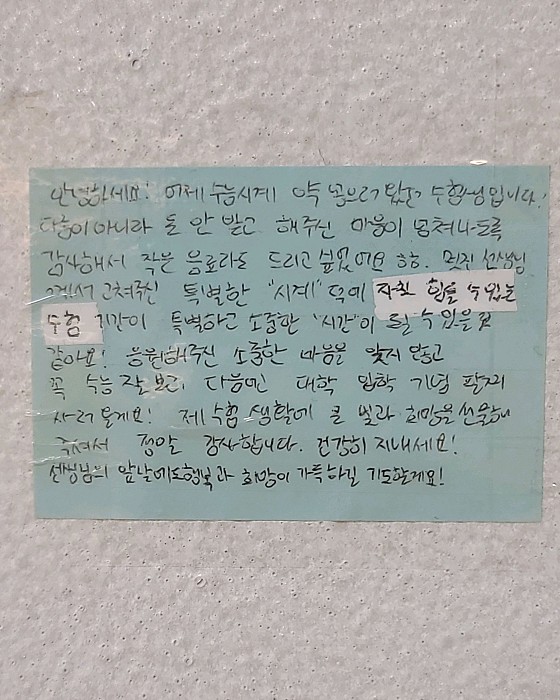 안녕하세요! 어제 수능시계 약 넣으러 왔던 수험생입니다!
다름이 아니라 돈 안 받고 해주신 마음이 뭉쳐나도록
감사해서 작은 음료라도 드리고 싶었어요 ㅎㅎ. 멋진 선생님
께서 고쳐주신 특별한 "시계" 덕에 자칫 힘들 수 있는
수험 기간이 특별하고 소중한 "시간"이 될 수 있을 것
같아요! 응원해주신 소중한 마음을 잊지 않고
꼭 수능 잘 보고, 다음엔 대학 입학 기념 팔찌
사러 올게요! 제 수험 생활에 큰 빛과 희망을 선물해
주셔서 정말 감사합니다. 건강히 지내세요!
선생님의 앞날에도 행복과 희망이 가득하길 기도할게요!